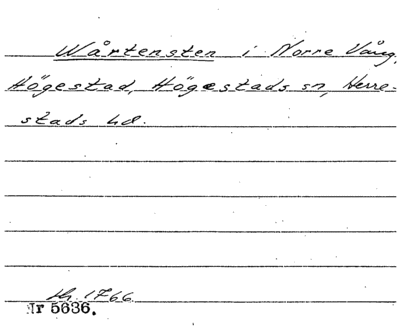 Wårtensten i Norre Vång,
Högestad, Högestads sn, Herre-
stads hd.
1766
Nr 5636.